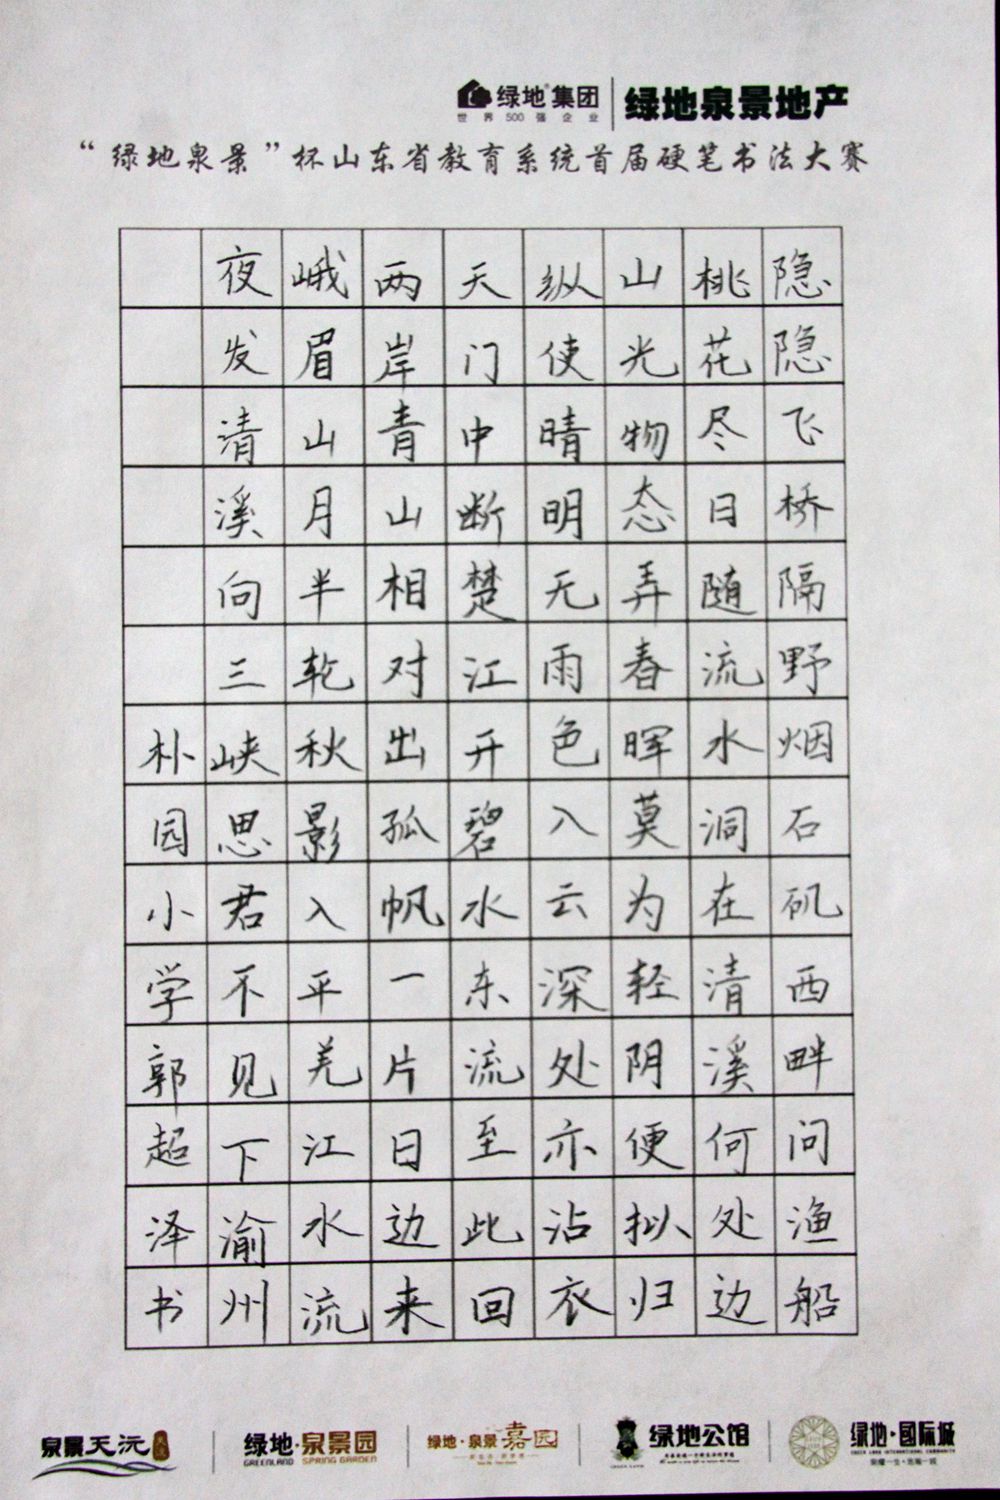 绿地集团
世界500强企业
绿地泉景地产
“绿地泉景”杯山东省教育系统首届硬笔书法大赛
隐隐飞桥隔野烟石矶西畔问渔船
桃花尽日随流水洞在清溪何处边
山光物态弄春晖莫为轻阴便拟归
纵使晴明无雨色入云深处亦沾衣
天门中断楚江开碧水东流至此回
两岸青山相对出孤帆一片日边来
峨眉山月半轮秋影入平羌江水流
夜发清溪向三峡思君不见下渝州
朴园小学郭超泽书
泉景天沅
绿地·泉景园
GREENLAND SPRING GARDEN
绿地·泉景嘉园
绿地公馆
GREEN LAND
绿地·国际城
GREEN LAND INTERNATIONAL COMMUNITY